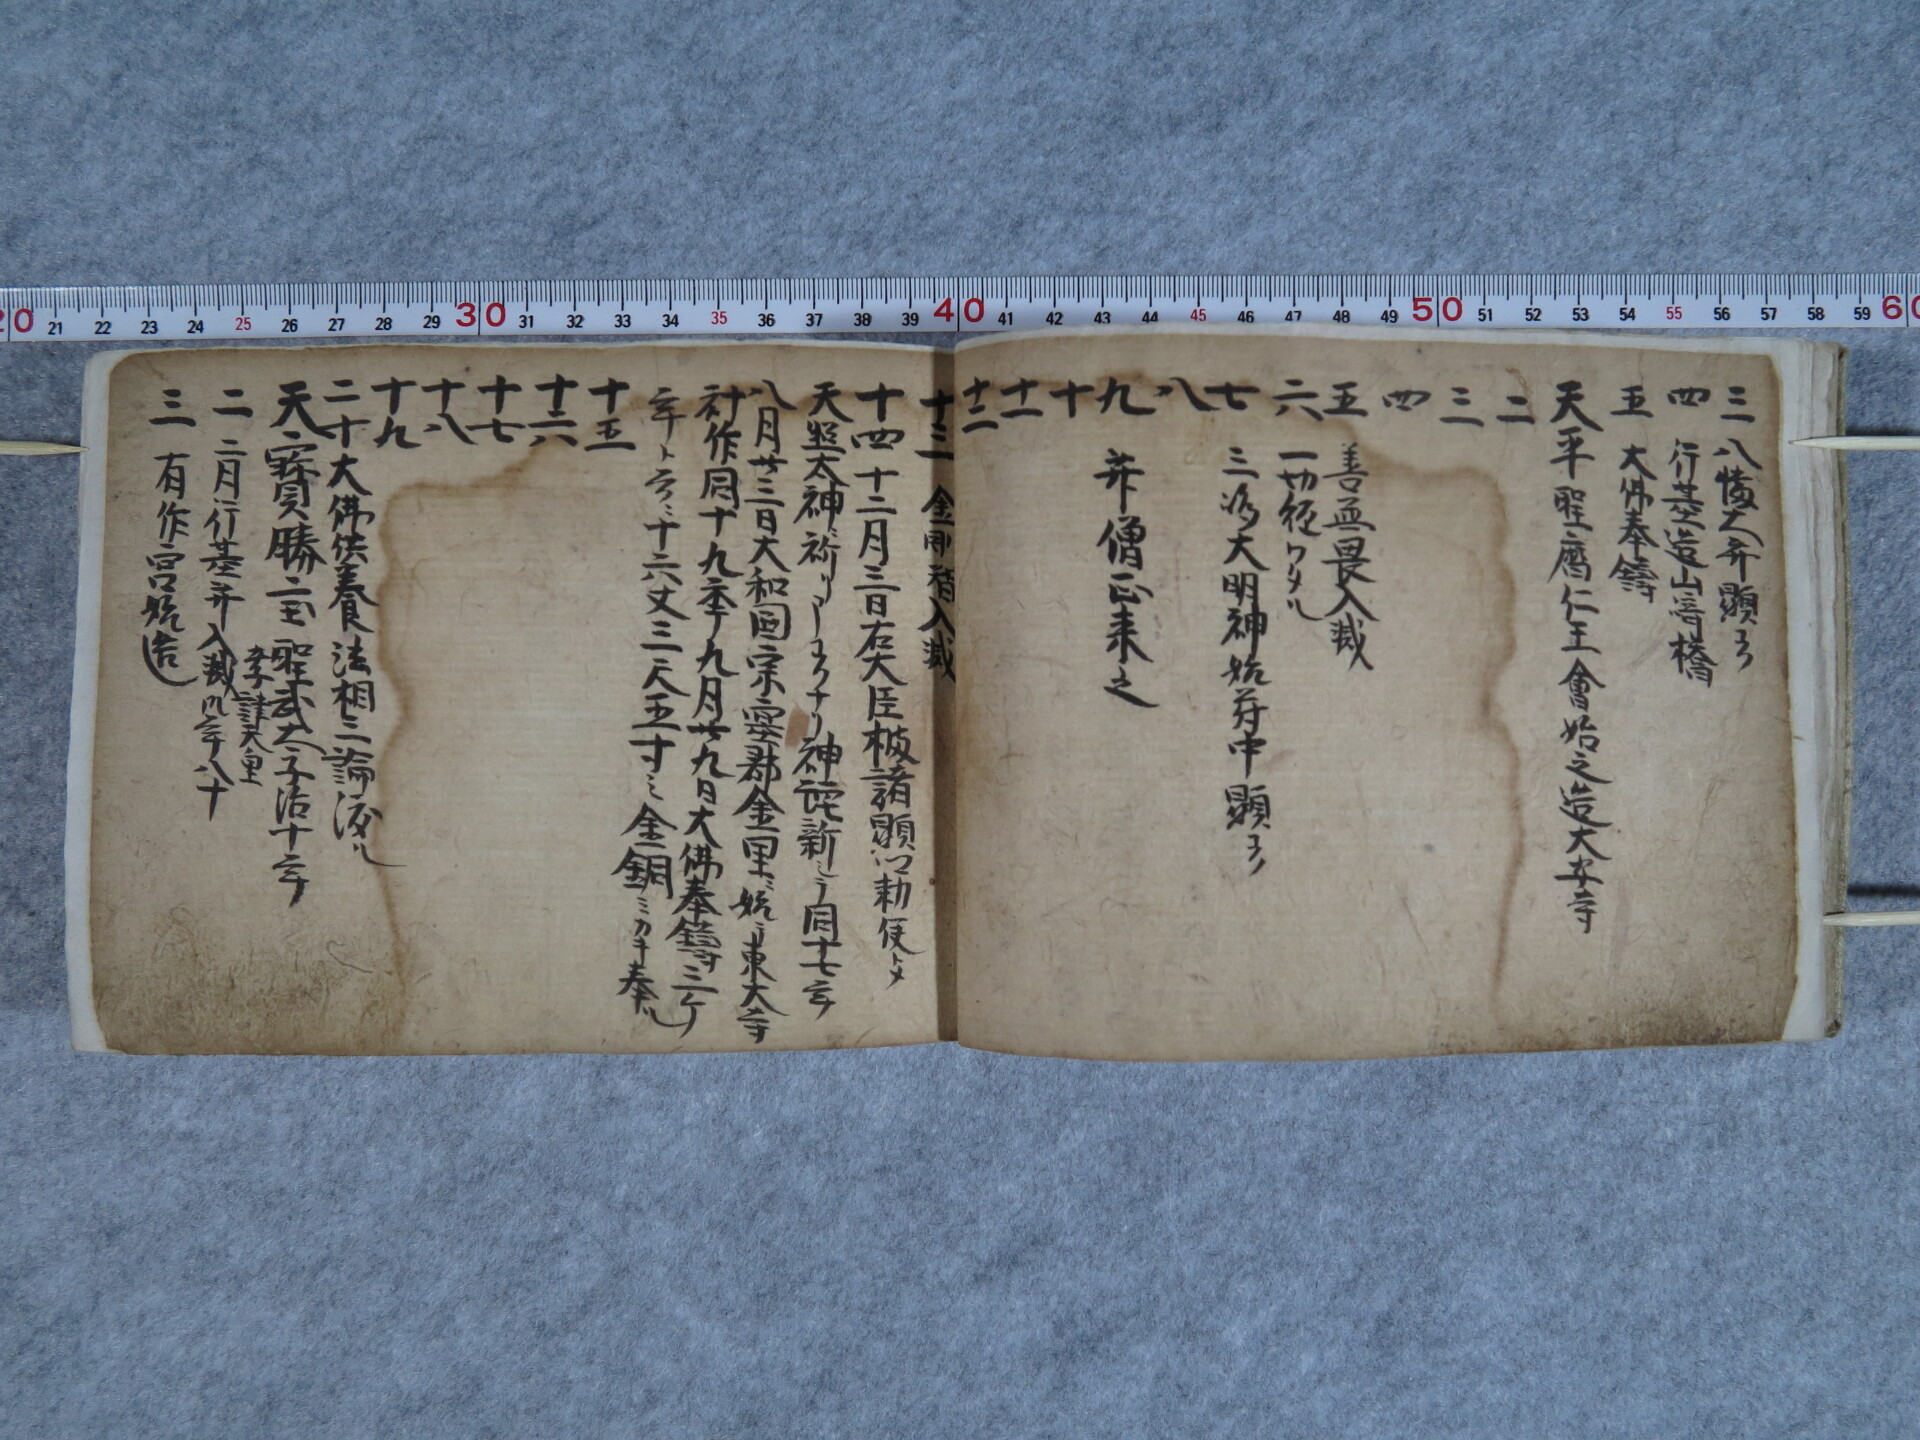 三 八幡大井顕玉フ
四 行基造山崎橋
五 大佛奉鑄
天平 聖暦仁王會始之造大安寺
二
三
四
五 善無畏入滅
六 一切経ワタル
七 三 大明神始苻中顕玉フ
八
九 井僧正来之
十
十一
十二
十三 金剛智入滅
十四 十二月三日右大臣橘諸顕 勅使トメ
天照太神ニ祈リ 神詫新ニシテ同十七年
八月廿三日大和国宗 郡金里ニ始テ東大寺
計作同十九年九月廿九日大佛奉鑄三ケ
年ト 十六丈三尺五寸ミ金銅ミカキ奉ル
十五
十六
十七
十八
十九
二十 大佛供養法相三論渡ル
天寳勝宝 聖武太子治十年
孝謙天皇
二 二月行基井入滅 年八十
三 有作宮始造
20 21 22 23 24 25 26 27 28 29 30 31 32 33 34 35 36 37 38 39 40 41 42 43 44 45 46 47 48 49 50 51 52 53 54 55 56 57 58 59 60